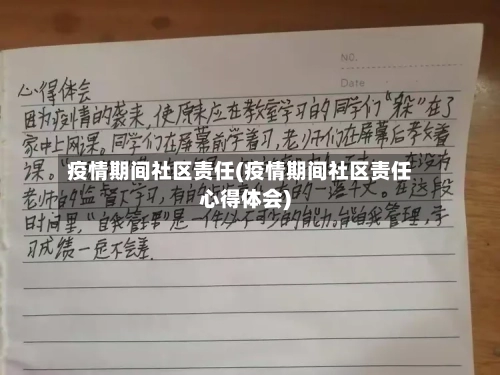 NO.
Date
心得体会
因为疫情的袭来,使原来应在教室学习的同学们“躲”在了
家中上网课。同学们在屏幕前学着习,老师们在屏幕后教着
课。“
疫情期间社区责任(疫情期间社区责任
在没有
老师的监督下学习,有自
的一塌干文。在这段
心得体会)
时间里,“自我管理”是一件必不可少的能力,能自我管理,学
习成绩一定不会差.